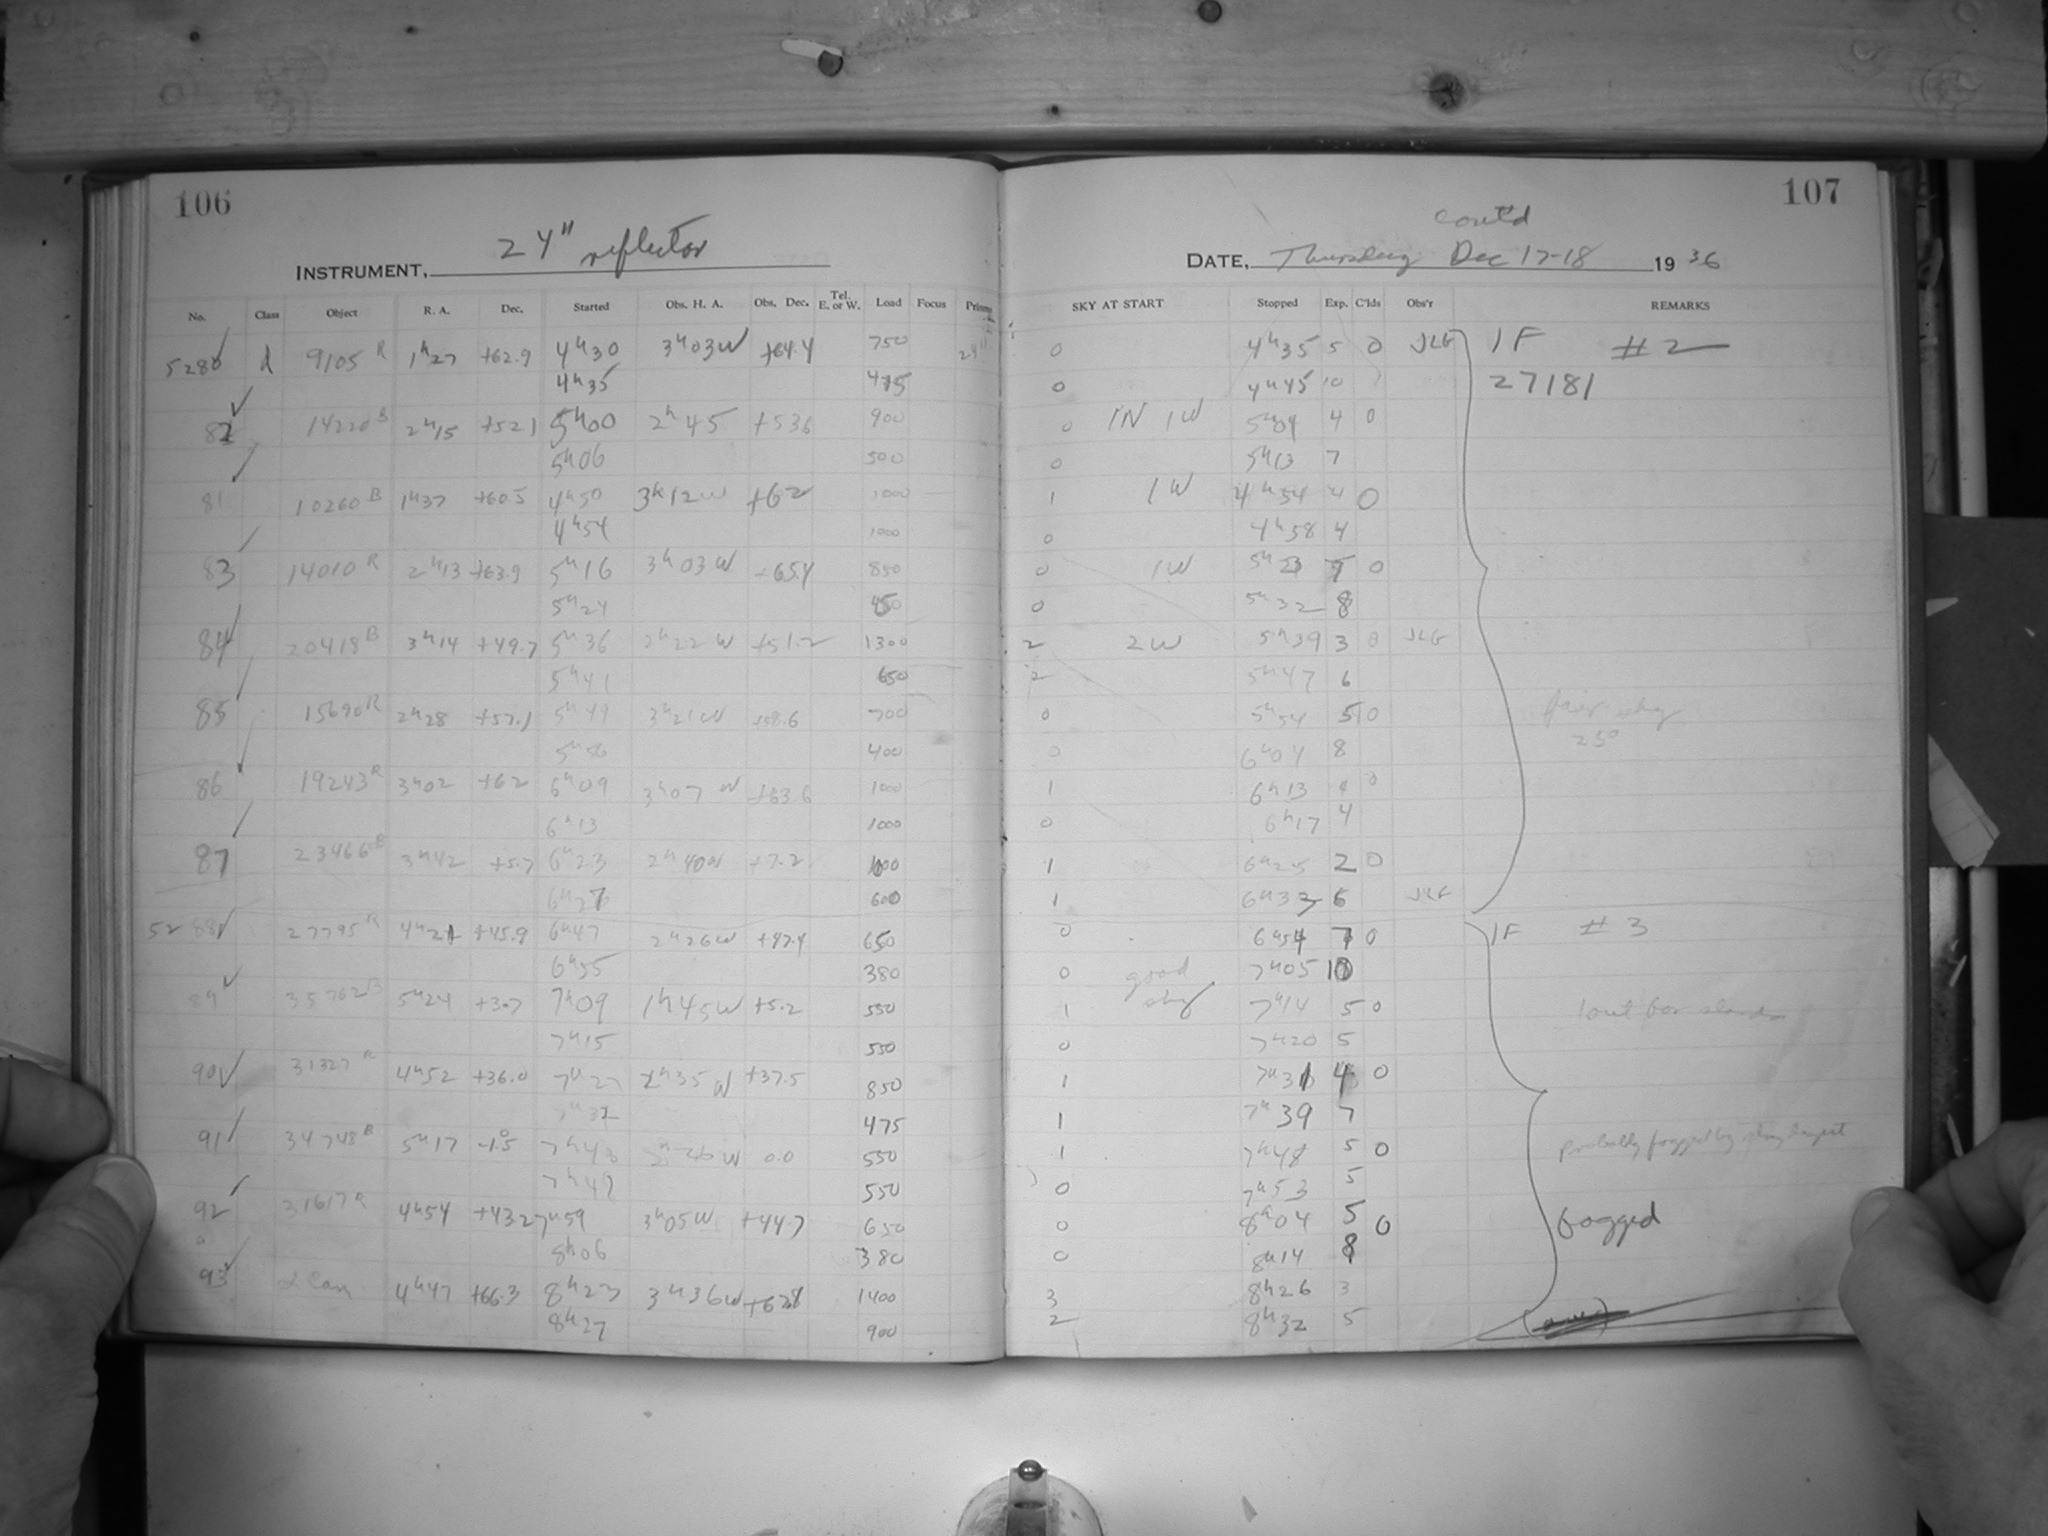 106
INSTRUMENT, 24" reflector
No. Class Object R. A. Dec. Started Obs. H. A. Obs. Dec. Tel. E. or W. Load Focus
5280 d 9105 R 1h27 +62.9 4h30 3h03W +64.4 750 24"
4h35 475
82 14220 B 2h15 +52.1 5h00 2h45 +53.6 900
5h06 500
81 10260 B 1h37 +60.5 4h50 3h12W +62 1000
4h54 1000
83 14010 R 2h13 +63.9 5h16 3h03W +65.4 850
5h24 450
84 20418 B 3h14 +49.7 5h36 2h22W +51.2 1300
5h41 650
85 15690 R 2h28 +57.1 5h49 3h21W +58.6 700
5h56 400
86 19243 R 3h02 +62 6h09 3h07W +63.6 1000
6h13 1000
87 23466 B 3h42 +5.7 6h23 2h40W +7.2
6h27 600
5288 27795 R 4h21 +45.9 6h47 2h26W +47.4 650
6h55 380
89 35762 B 5h24 +3.7 7h09 1h45W +5.2 550
7h15 550
90 31327 R 4h52 +36.0 7h27 2h35W +37.5 850
7h32 475
91 34748 B 5h17 -1.5 7h43 2h26W 0.0 550
7h47 550
92 31617 R 4h54 +43.2 7h59 3h05W +44.7 650
8h06 380
93 α Cam 4h47 +66.3 8h23 3h36W 1400
8h27 900
107
cont'd
DATE, Thursday Dec 17-18 1936
SKY AT START Stopped Exp. C'lds Obs'r REMARKS
0 4h35 5 0 JLG 1F #2
0 4h45 10 27181
0 1N 1W 5h04 4 0
0 5h13 7
1 1W 4h54 4 0
0 4h58 4
0 1W 5h23 7 0
0 5h32 8
2 2W 5h39 3 0 JLG
2 5h47 6
0 5h54 5 0 fair sky
25°
0 6h04 8
1 6h13 0
0 6h17 4
1 6h25 2 0
1 6h33 6 JLG
0 6h54 7 0 1F #3
0 good 7h05 10
1 sky 7h14 5 0
0 7h20 5
1 7h31 4 0
1 7h39 7
1 7h48 5 0 probably fogged by
0 7h53 5
0 8h04 5 0 fogged
0 8h14 8
3 8h26 3
2 8h32 5